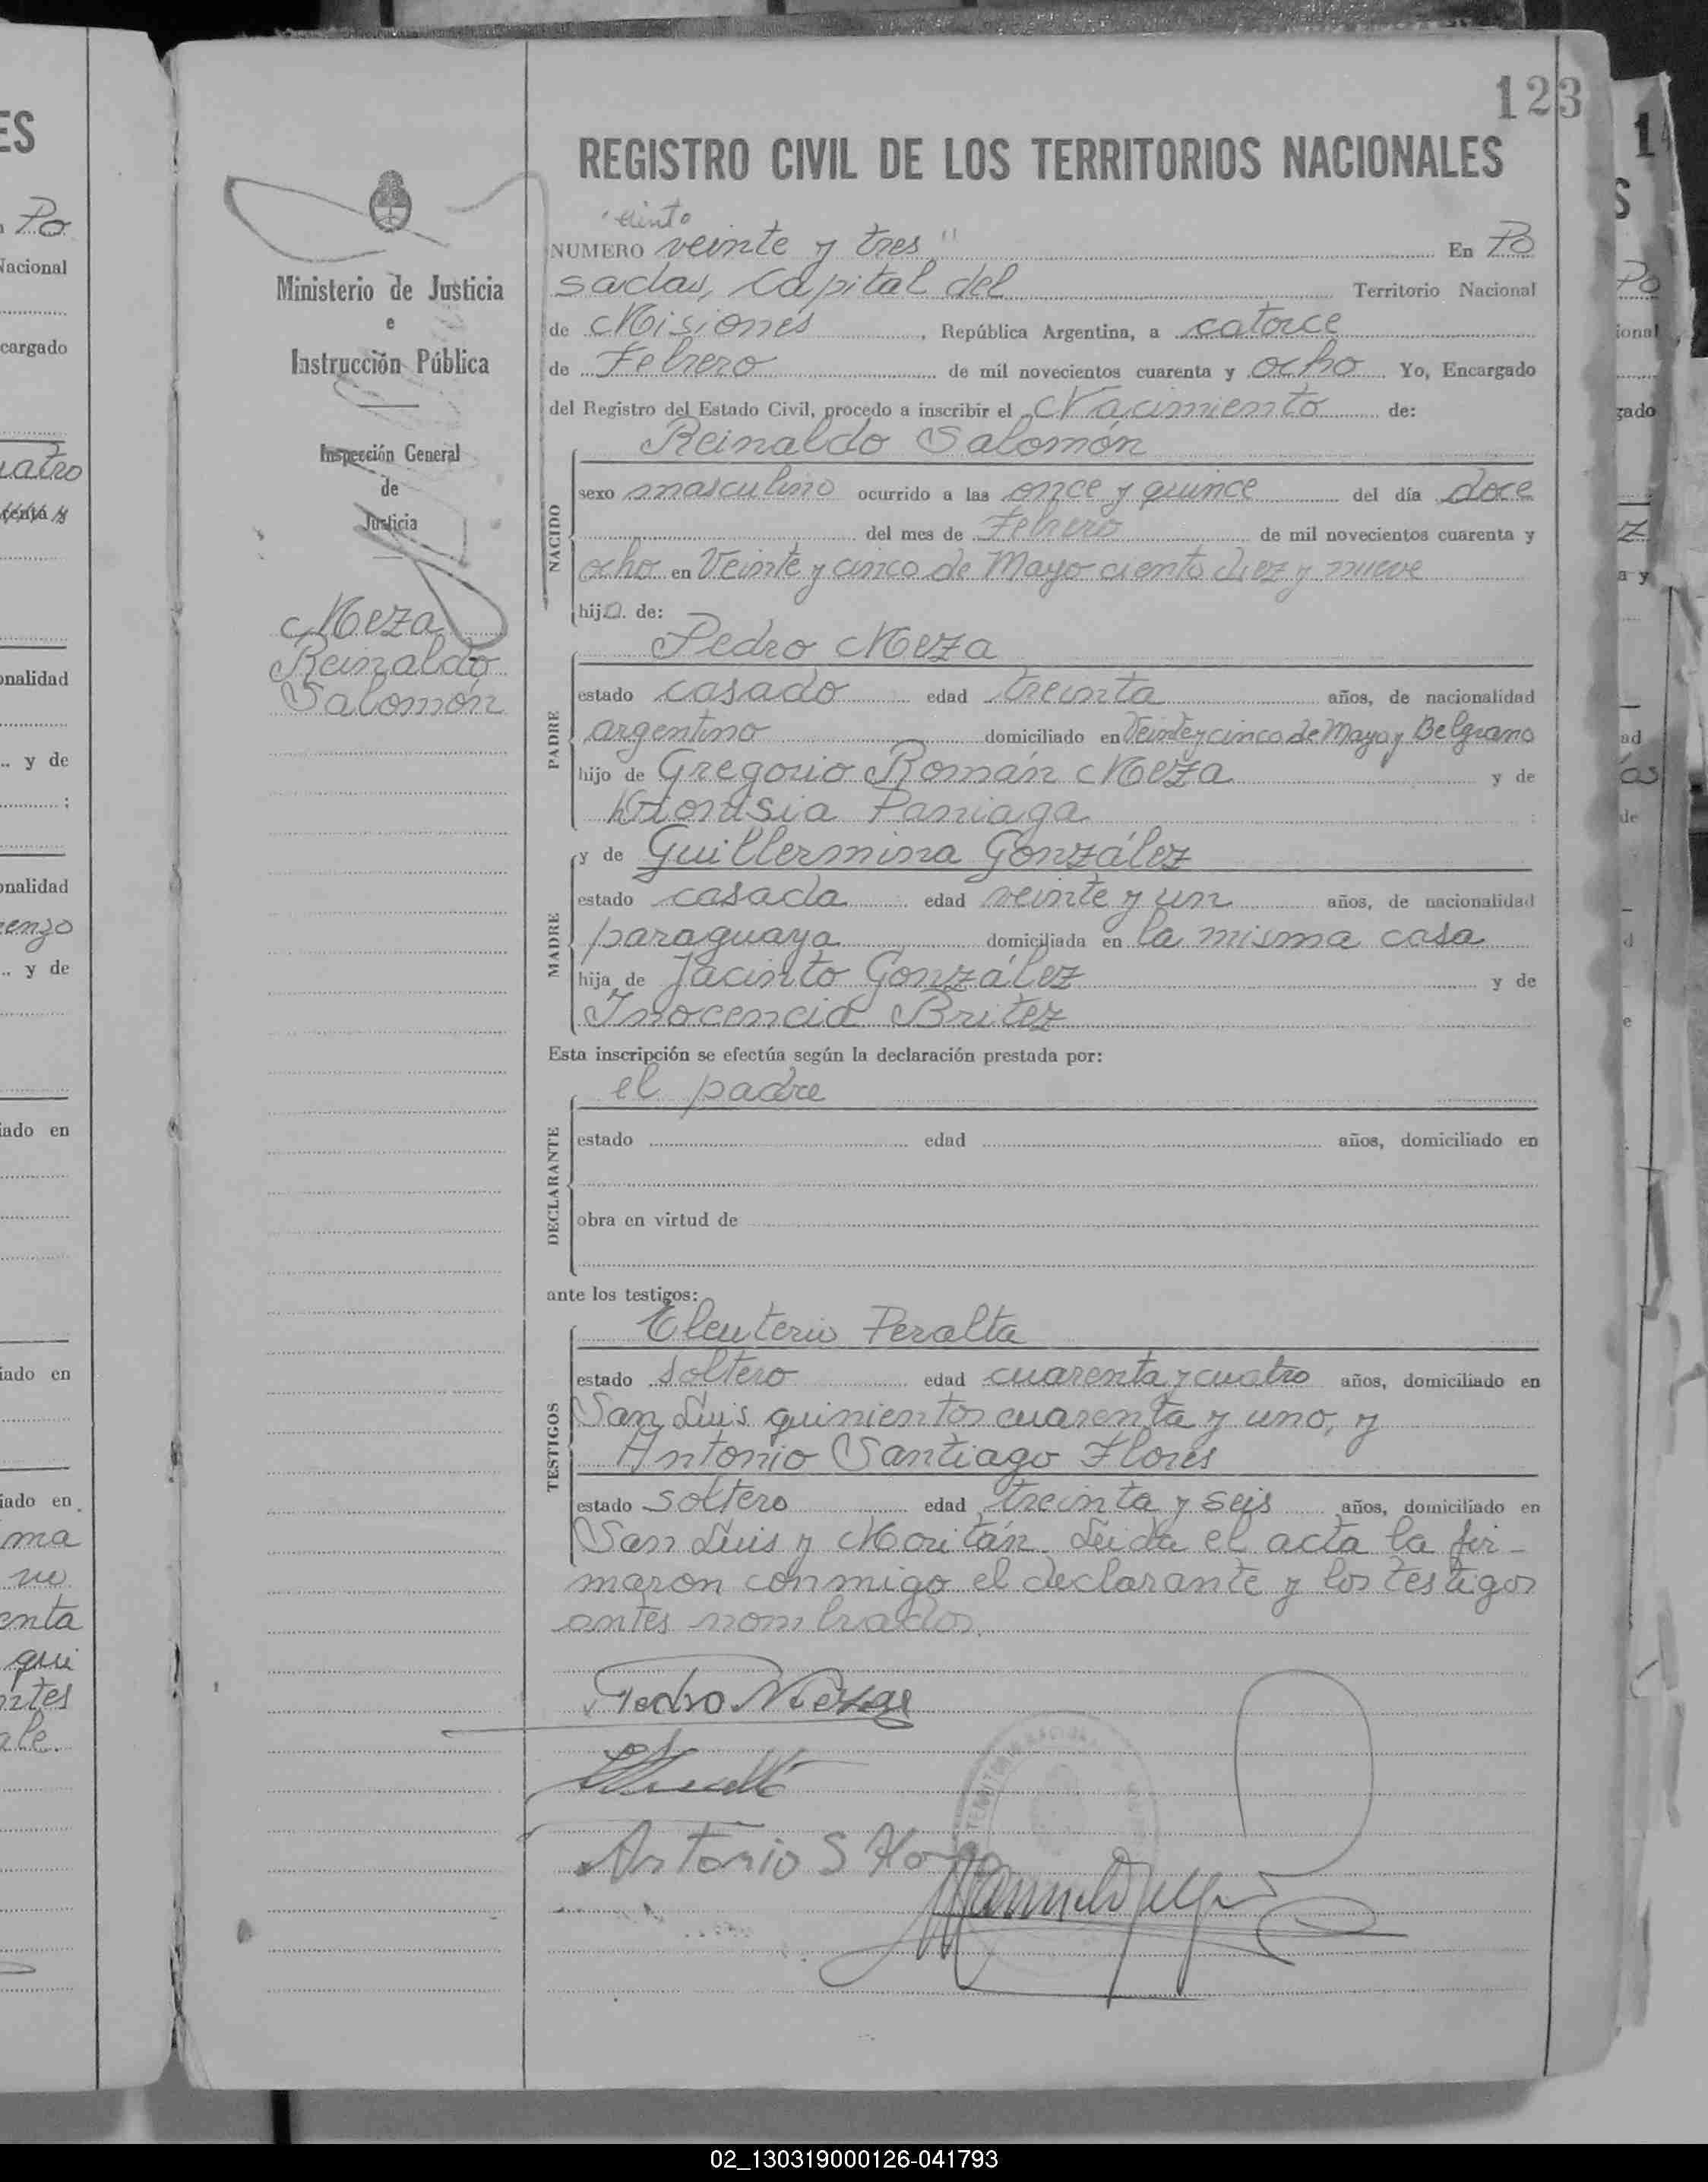 123
REGISTRO CIVIL DE LOS TERRITORIOS NACIONALES
ciento
NUMERO veinte y tres " En Po
sadas, Capital del Territorio Nacional
de Misiones, República Argentina, a catorce
de Febrero de mil novecientos cuarenta y ocho Yo, Encargado
del Registro del Estado Civil, procedo a inscribir el Nacimiento de:
Ministerio de Justicia
e
Instrucción Pública
Inspección General
de
Justicia
Meza
Reinaldo
Salomón
NACIDO
Reinaldo Salomón
sexo masculino ocurrido a las once y quince del día doce
del mes de Febrero de mil novecientos cuarenta y
ocho en Veinte y cinco de Mayo ciento diez y nueve
hijo de:
PADRE
Pedro Meza
estado casado edad treinta años, de nacionalidad
argentino domiciliado en Veinte y cinco de Mayo y Belgrano
hijo de Gregorio Román Meza y de
Paniaga
MADRE
y de Guillermina González
estado casada edad veinte y un años, de nacionalidad
paraguaya domiciliada en la misma casa
hija de Jacinto González y de
Inocencia Britez
Esta inscripción se efectúa según la declaración prestada por:
el padre
DECLARANTE
estado edad años, domiciliado en
obra en virtud de
ante los testigos:
TESTIGOS
Eleuterio Peralta
estado soltero edad cuarenta y cuatro años, domiciliado en
San Luis quinientos cuarenta y uno, y
Antonio Santiago Flores
estado soltero edad treinta y seis años, domiciliado en
San Luis y Moritán. Leida el acta la fir-
maron conmigo el declarante y los testigos
antes nombrados.
Pedro Meza
Antonio S Flo
02_130319000126-041793